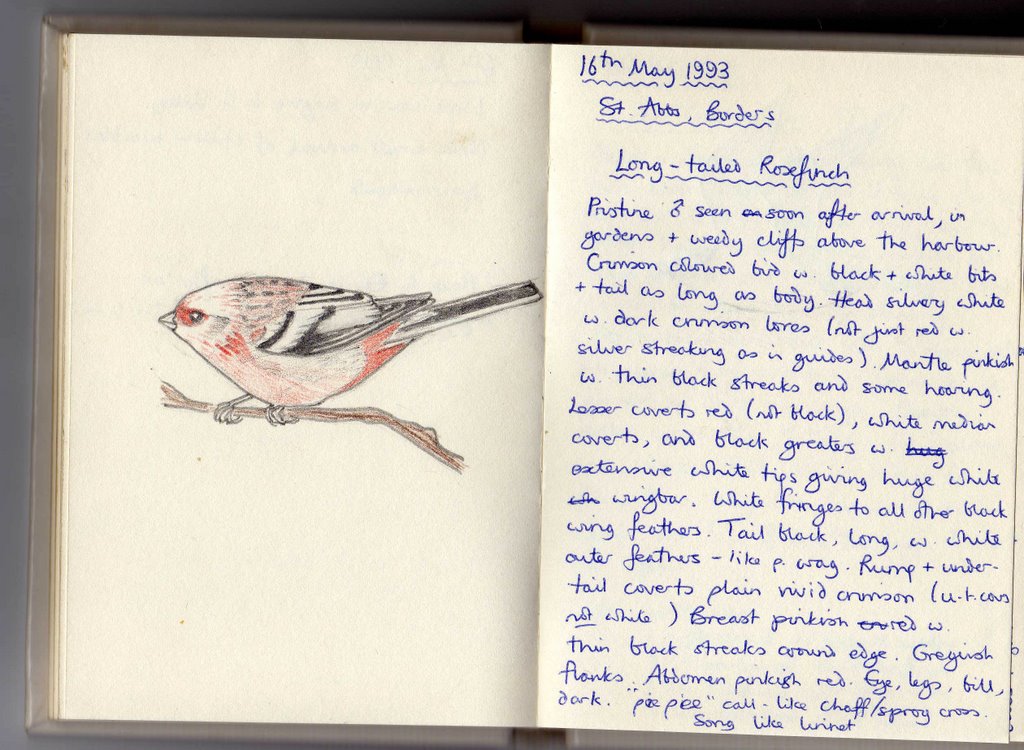 16th May 1993
St. Abbs, Borders
Long-tailed Rosefinch
Pristine ♂ seen soon after arrival, in
gardens + weedy cliffs above the harbour.
Crimson coloured bird w. black + white bits
+ tail as long as body. Head silvery white
w. dark crimson lores (not just red w.
silver streaking as in guides). Mantle pinkish
w. thin black streaks and some hoaring.
Lesser coverts red (not black), white median
coverts, and black greaters w. hug
extensive white tips giving huge white
wingbar. White fringes to all other black
wing feathers. Tail black, long, w. white
outer feathers - like p. wag. Rump + under-
tail coverts plain vivid crimson (u.t.covs
not white) Breast pinkish red w.
thin black streaks around edge. Greyish
flanks. Abdomen pinkish red. Eye, legs, bill,
dark. "pie piee" call - like chaff/sprog cross.
Song like linnet